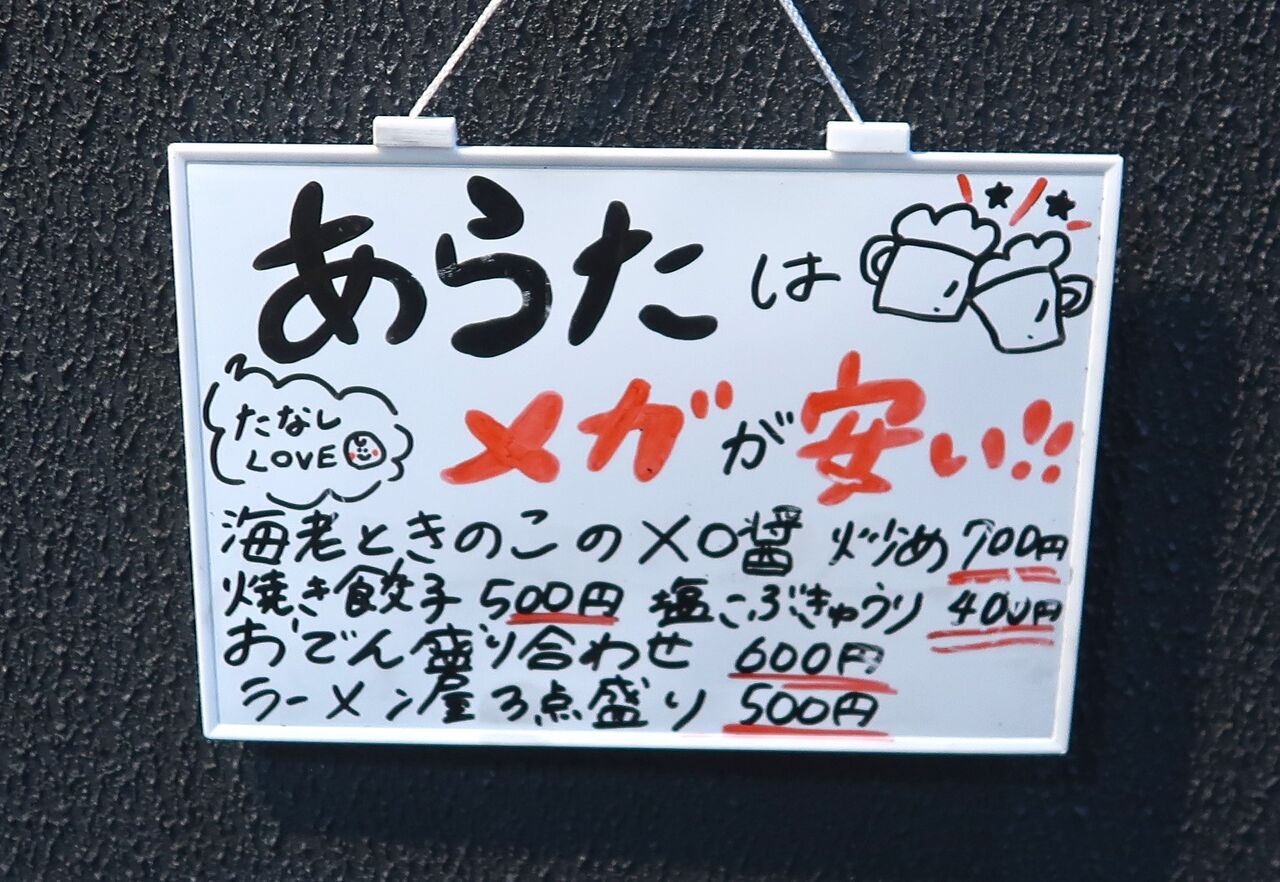 あらたは
メガが安い!!
たなし
LOVE
海老ときのこのXO醤炒め 700円
焼き餃子 500円 塩こぶきゅうり 400円
おでん盛り合わせ 600円
ラーメン屋3点盛り 500円